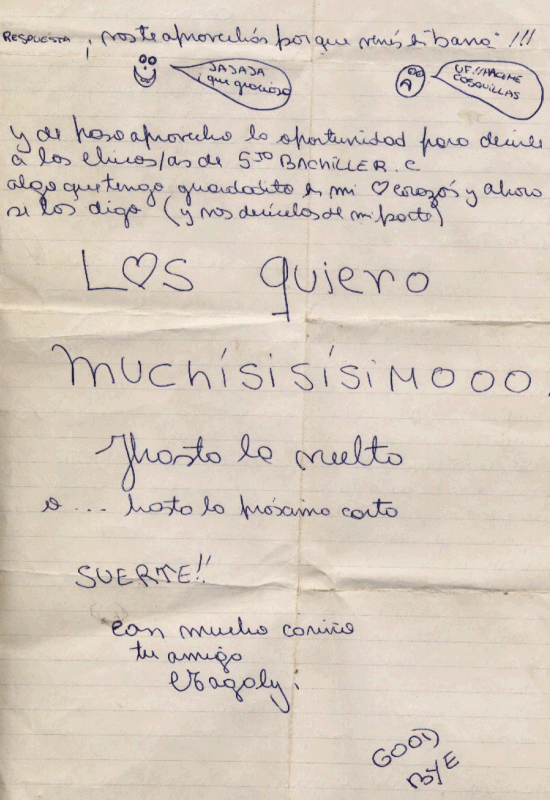 RESPUESTA ¡ vos te aprovechás porque venís en "barra" !!!
JAJAJA
¡ que gracioso
UF!! HACEME
COSQUILLAS
y de paso aprovecho la oportunidad para decirle
a los chicos/as de 5to BACHILLER. C
algo que tengo guardadito en mi ♡ corazón y ahora
se los digo (y vos decícelos de mi parte)
L♡S quiero
MUCHÍSISÍSIMOOO.
¡hasta la vuelta
o ... hasta la próxima carta
SUERTE!!
con mucho cariño
tu amiga
Magaly.
GOOD
BYE